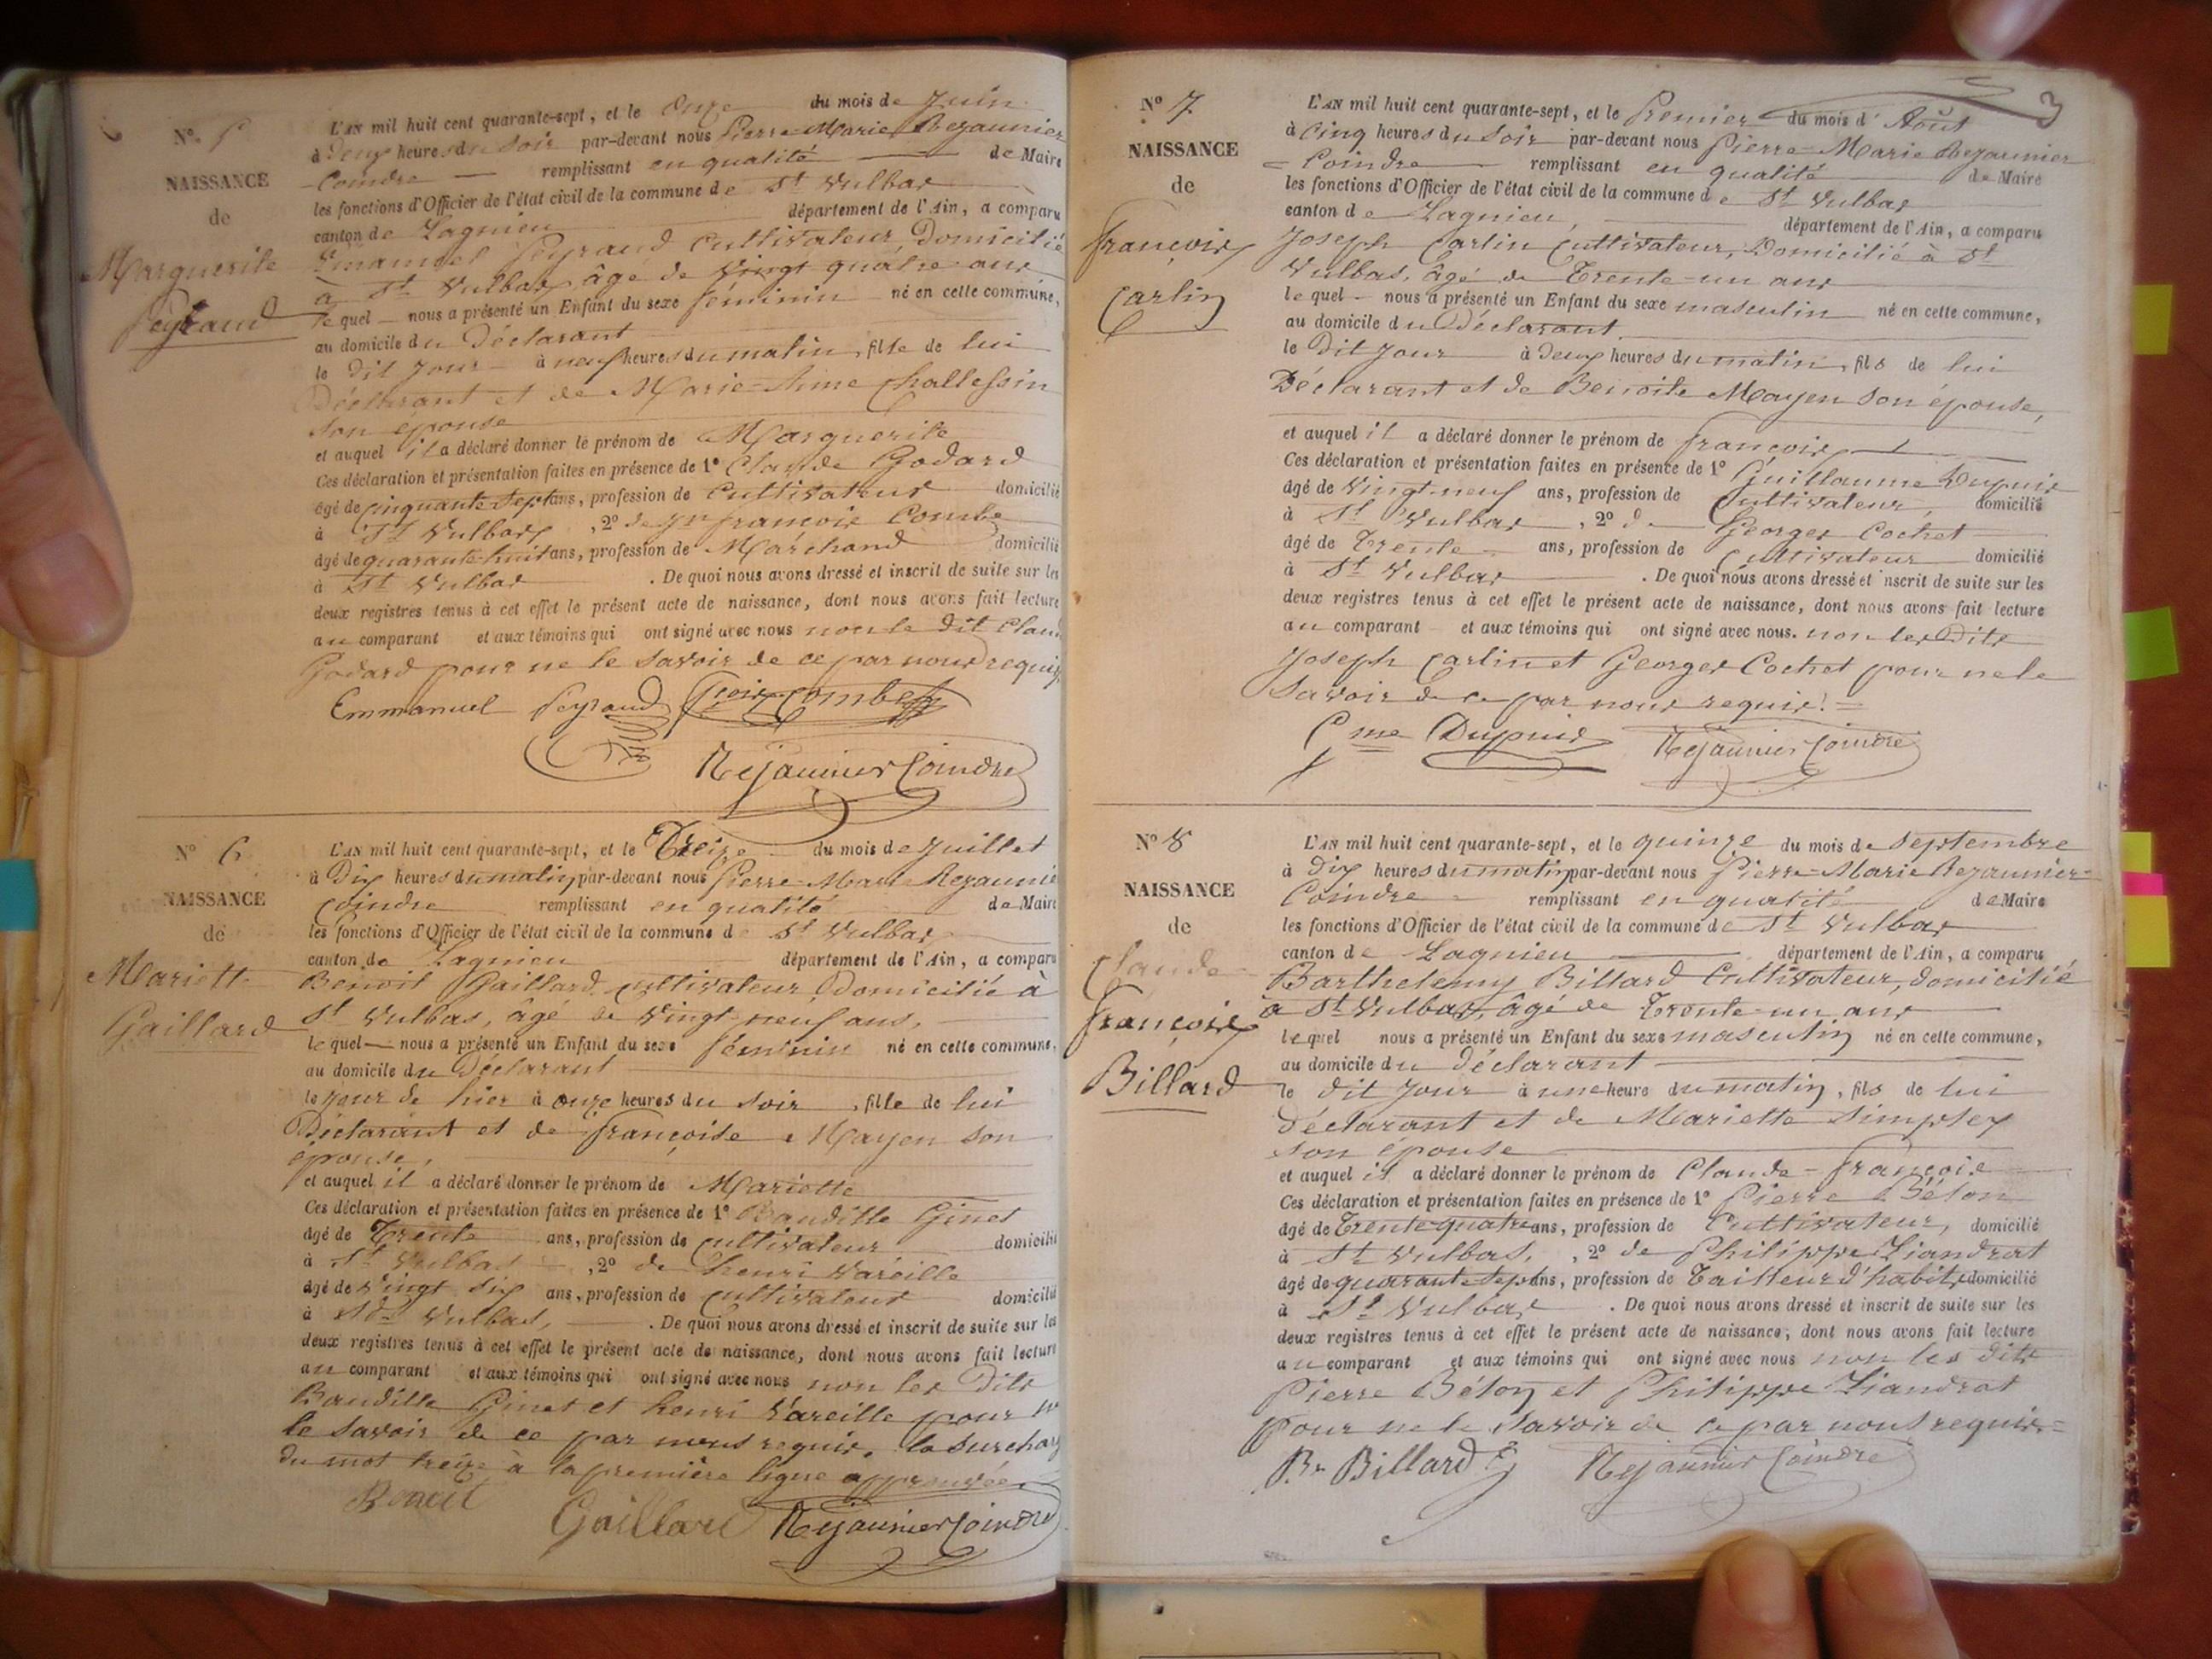 N° 5
NAISSANCE
de
Marguerite
Peyraud
L'AN mil huit cent quarante-sept, et le onze du mois de Juin
à Deux heures du soir par-devant nous Pierre-Marie Rejaunier
-Coindre remplissant en qualité de Maire
les fonctions d'Officier de l'état civil de la commune de St Vulbas
canton de Lagnieu département de l'Ain, a comparu
Emanuel Peyraud Cultivateur, Domicilié
à St Vulbas, âgé de vingt quatre ans
le quel nous a présenté un Enfant du sexe féminin né en cette commune,
au domicile du Déclarant
le dit Jour à neuf heures du matin, fille de lui
Déclarant et de Marie-Aime Challessin
son épouse
et auquel il a déclaré donner le prénom de Marguerite
Ces déclaration et présentation faites en présence de 1° Claude Godard
âgé de cinquante sept ans, profession de Cultivateur domicilié
à St Vulbas, 2° de Jn françois Combe
âgé de quarante-huit ans, profession de Marchand domicilié
à St Vulbas. De quoi nous avons dressé et inscrit de suite sur les
deux registres tenus à cet effet le présent acte de naissance, dont nous avons fait lecture
au comparant et aux témoins qui ont signé avec nous non le dit Clau
Godard pour ne le savoir de ce par nous requis
Emmanuel Peyraud Combe
Rejaunier Coindre
N° 6
NAISSANCE
de
Mariette
Gaillard
L'AN mil huit cent quarante-sept, et le Treize du mois de Juillet
à Dix heures du matin par-devant nous Pierre-Marie Rejaunie
Coindre remplissant en qualité de Maire
les fonctions d'Officier de l'état civil de la commune d St Vulbas
canton de Lagnieu département de l'Ain, a comparu
Benoit Gaillard cultivateur Domicilié à
St Vulbas, âgé de vingt neuf ans,
le quel nous a présenté un Enfant du sexe féminin né en cette commune,
au domicile du Déclarant
le jour de hier à onze heures du soir, fille de lui
Déclarant et de françoise Mayen son
épouse,
et auquel il a déclaré donner le prénom de Mariette
Ces déclaration et présentation faites en présence de 1° Baudille Ginet
âgé de Trente ans, profession de cultivateur domicilié
à St Vulbas, 2° de henri Vareille
âgé de vingt six ans, profession de cultivateur domicilié
à St Vulbas, . De quoi nous avons dressé et inscrit de suite sur les
deux registres tenus à cet effet le présent acte de naissance, dont nous avons fait lecture
au comparant et aux témoins qui ont signé avec nous non les Dits
Baudille Ginet et henri Vareille pour ne
le savoir de ce par nous requis. la surcharg
du mot treize à la première ligne approuvée
Benoit Gaillard Rejaunier Coindre
3
N° 7
NAISSANCE
de
françois
Carlin
L'AN mil huit cent quarante-sept, et le Premier du mois d'Août
à Cinq heures du soir par-devant nous Pierre-Marie Rejaunier
=Coindre remplissant en qualité de Maire
les fonctions d'Officier de l'état civil de la commune de St Vulbas
canton de Lagnieu département de l'Ain, a comparu
Joseph Carlin Cultivateur, Domicilié à St
Vulbas, âgé de Trente-un ans
le quel nous a présenté un Enfant du sexe masculin né en cette commune,
au domicile du Déclarant
le Dit Jour à deux heures du matin, fils de lui
Déclarant et de Benoite Mayen son épouse,
et auquel il a déclaré donner le prénom de françois
Ces déclaration et présentation faites en présence de 1° Guillaume Dupuis
âgé de vingt-neuf ans, profession de Cultivateur, domicilié
à St Vulbas, 2° de Georges Cochet
âgé de Trente ans, profession de cultivateur domicilié
à St Vulbas. De quoi nous avons dressé et inscrit de suite sur les
deux registres tenus à cet effet le présent acte de naissance, dont nous avons fait lecture
au comparant et aux témoins qui ont signé avec nous. non les Dits
Joseph Carlin et Georges Cochet pour ne le
savoir de ce par nous requis! =
Gme Dupuis Rejaunier Coindre
N° 8
NAISSANCE
de
Claude
françois
Billard
L'AN mil huit cent quarante-sept, et le quinze du mois de septembre
à Dix heures du matin par-devant nous Pierre-Marie Rejaunier=
Coindre remplissant en qualité de Maire
les fonctions d'Officier de l'état civil de la commune de St Vulbas
canton de Lagnieu département de l'Ain, a comparu
Barthelemy Billard Cultivateur, domicilié
à St Vulbas, âgé de Trente-un ans
le quel nous a présenté un Enfant du sexe masculin né en cette commune,
au domicile du déclarant
le dit Jour à une heure du matin, fils de lui
déclarant et de Mariette Simplex
son épouse
et auquel il a déclaré donner le prénom de Claude-françois
Ces déclaration et présentation faites en présence de 1° Pierre Béton
âgé de Trente quatre ans, profession de Cultivateur, domicilié
à St Vulbas, , 2° de Philippe Liandrat
âgé de quarante sept ans, profession de Tailleur d'habits, domicilié
à St Vulbas. De quoi nous avons dressé et inscrit de suite sur les
deux registres tenus à cet effet le présent acte de naissance, dont nous avons fait lecture
au comparant et aux témoins qui ont signé avec nous non les dits
Pierre Béton et Philippe Liandrat
pour ne le savoir de ce par nous requis.=
Br Billard Rejaunier Coindre